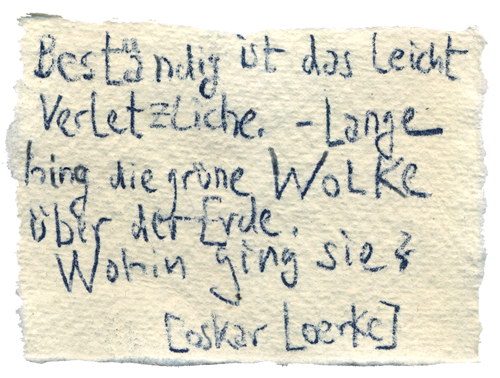 Beständig ist das leicht
Verletzliche. - Lange
hing die grüne Wolke
über der Erde.
Wohin ging sie?
[Oskar Loerke]